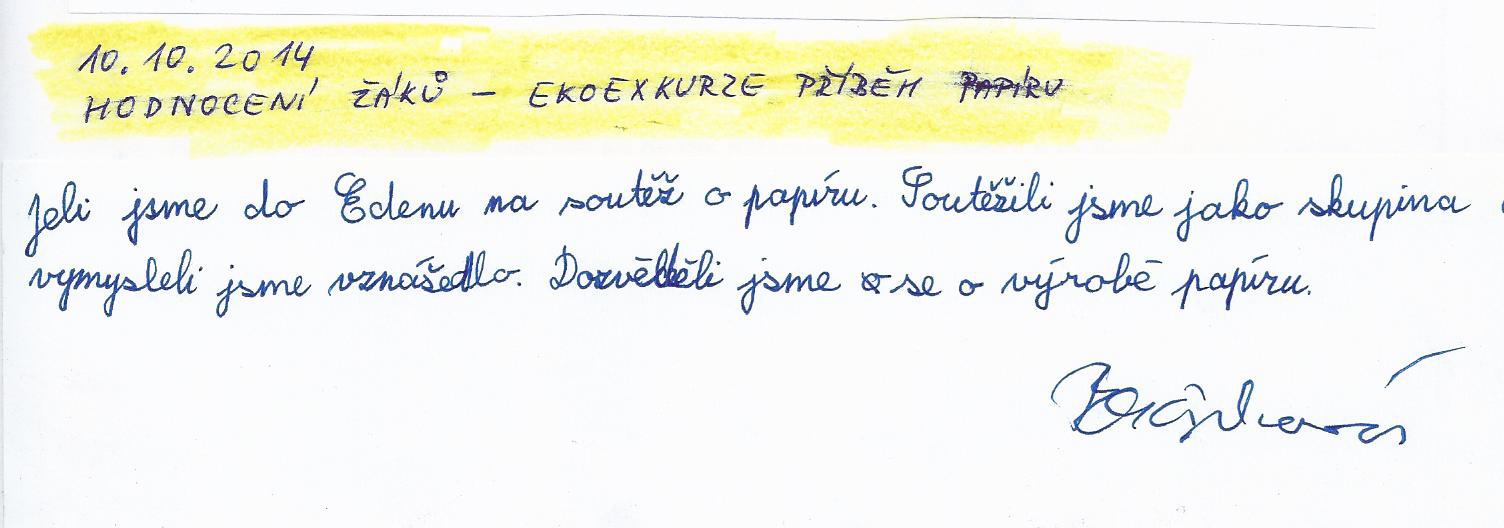 10.10.2014
HODNOCENÍ ŽÁKŮ – EKOEXKURZE PŘÍBĚH PAPÍRU
Jeli jsme do Edenu na soutěž o papíru. Soutěžili jsme jako skupina
vymysleli jsme vznášedlo. Dozvěděli jsme se o výrobě papíru.